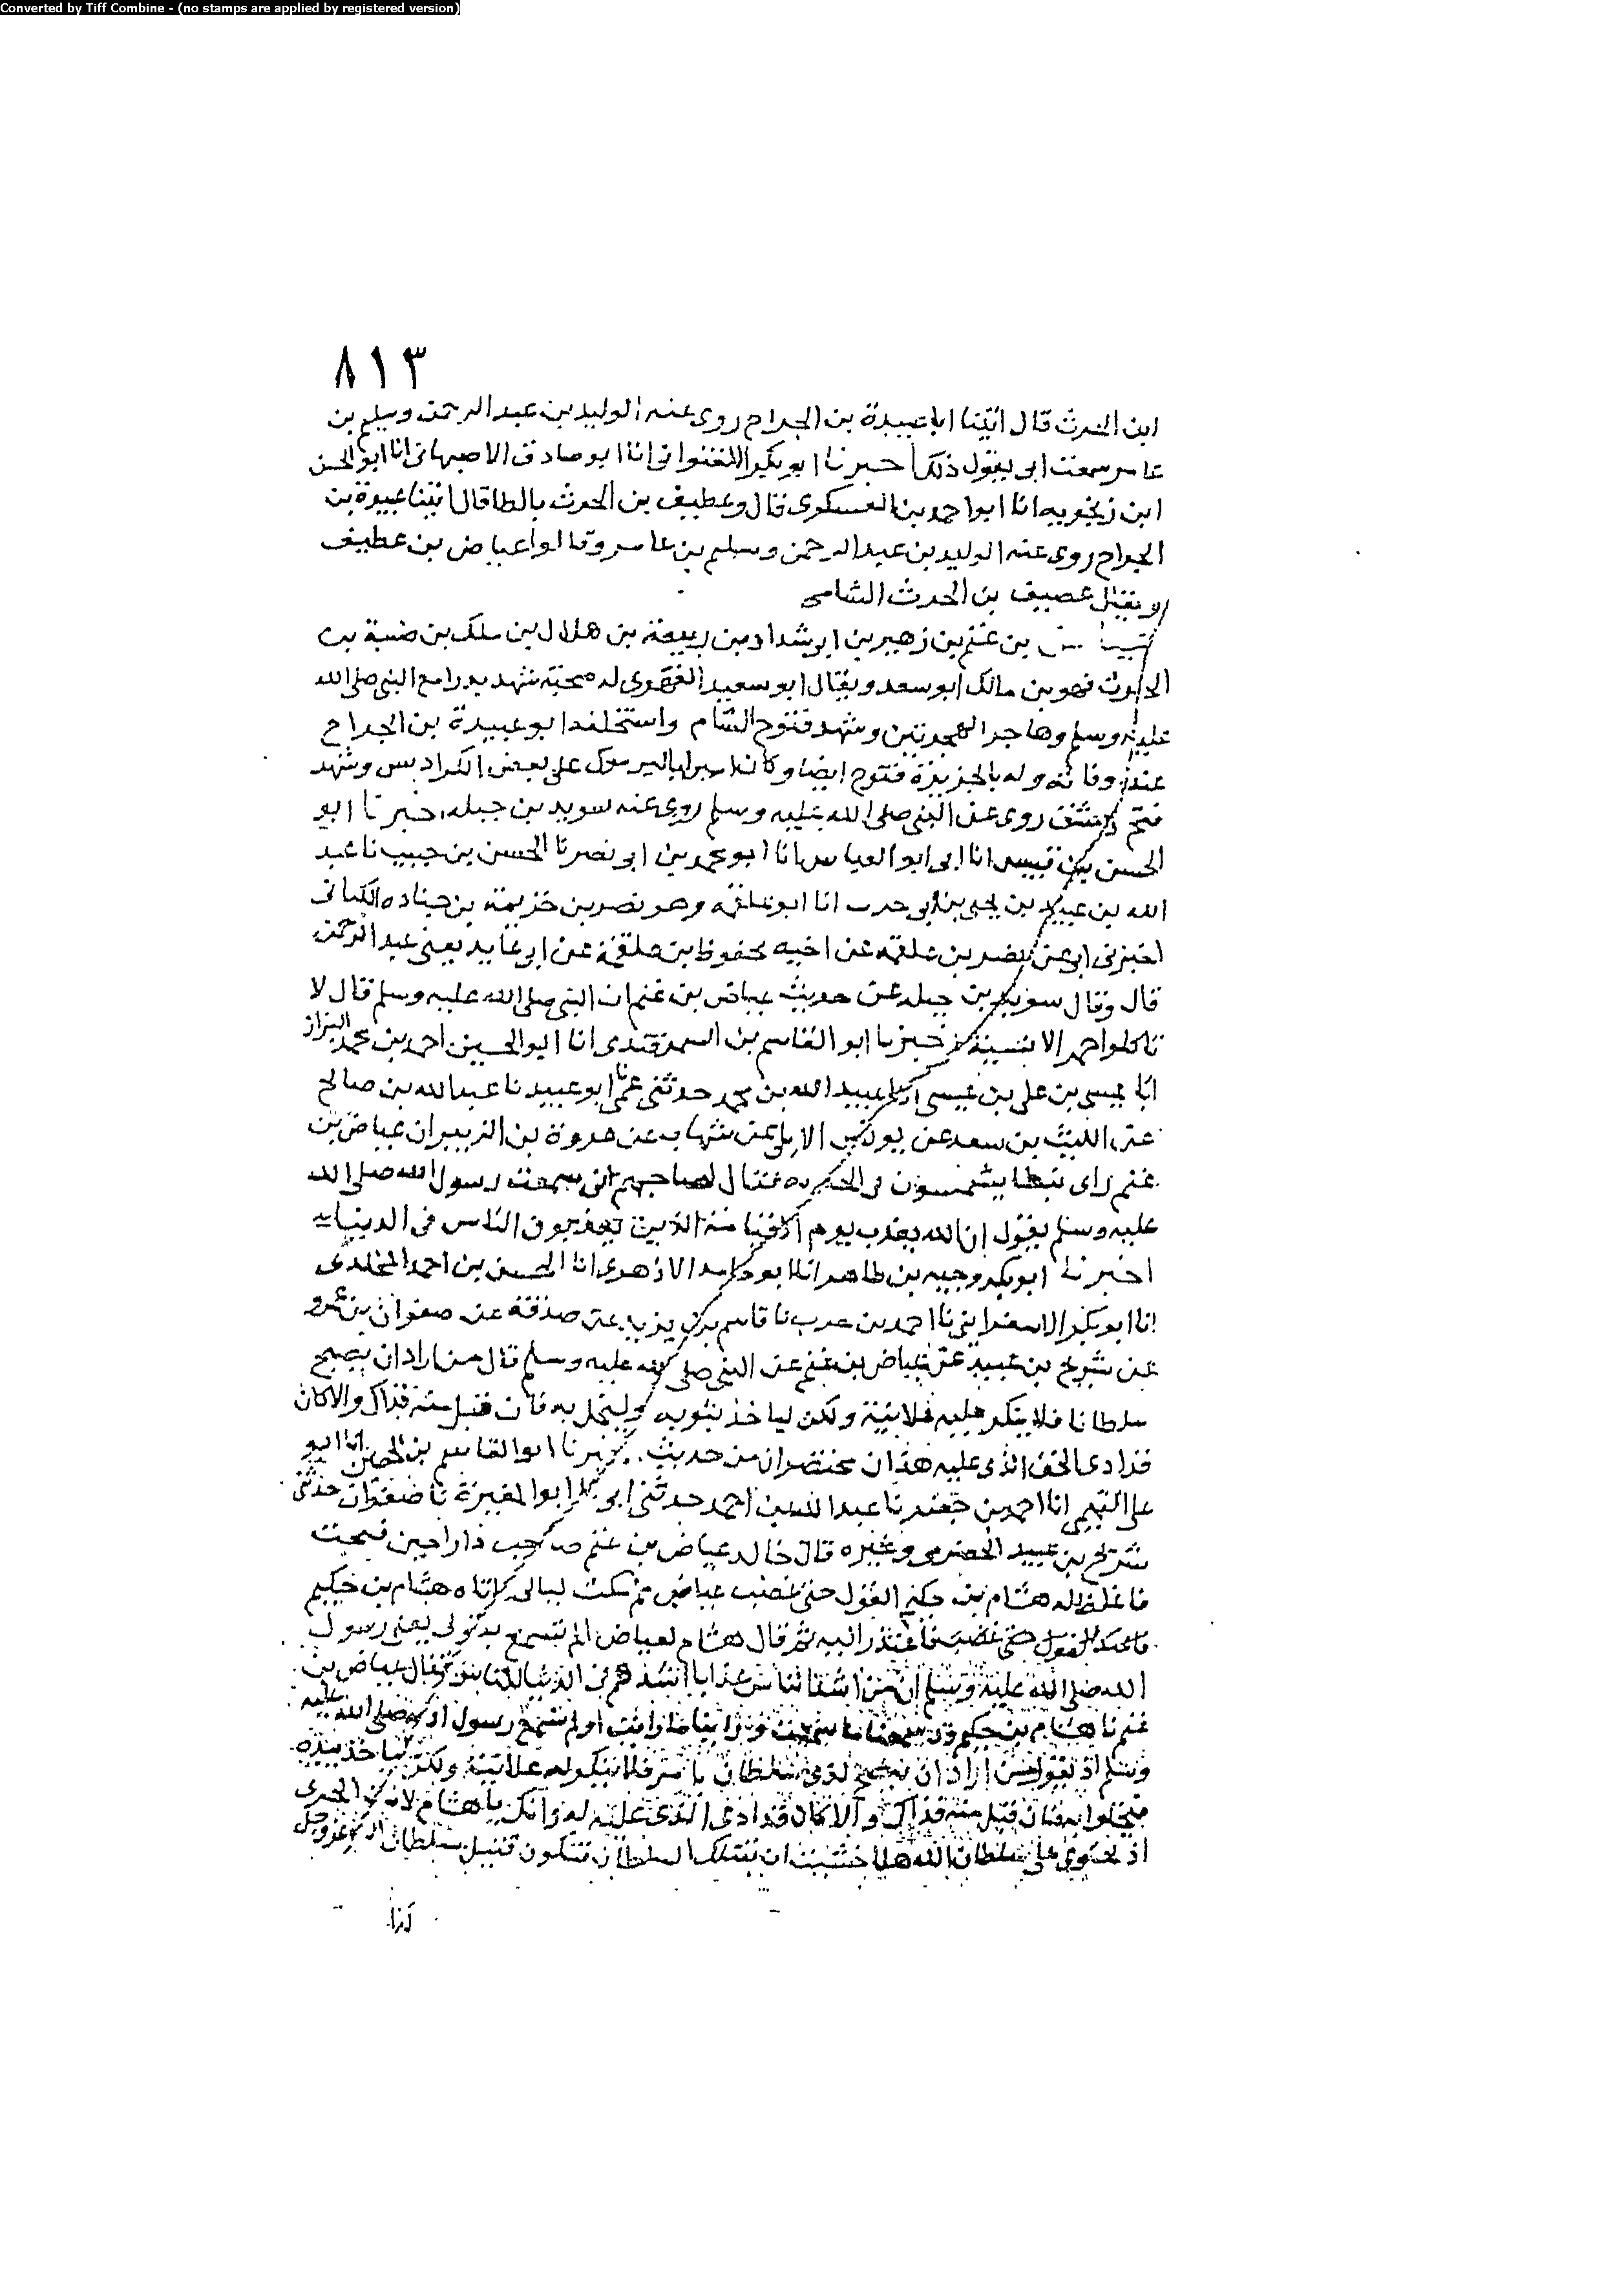 Converted by Tiff Combine - (no stamps are applied by registered version)
٨١٣
ابن الحرث قال اتينا ابا عبيدة بن الجراح روى عنه الوليد بن عبد الرحمن وسليم بن
عامر سمعت ابى يقول ذلك اخبرنا ابو بكر اللفتوانى انا ابو صادق الاصبهانى انا ابو الحسن
ابن زنجويه انا ابو احمد بن العسكرى قال وعطيف بن الحرث بالطا قال اتينا عبيدة بن
الجراح روى عنه الوليد بن عبد الرحمن وسليم بن عامر وقالوا عياض بن عطيف
ويقال غصيف بن الحرث الشامى
بن غنم بن زهير بن ابى شداد بن ربيعة بن هلال بن ملك بن ضبة بن
الحارث فهو بن مالك ابو سعد ويقال ابو سعيد الفهرى له صحبة شهد بدرا مع النبى صلى الله
عليه وسلم وهاجر الهجرتين وشهد فتوح الشام واستخلفه ابو عبيدة بن الجراح
عند وفاته وله بالجزيرة فتوح ايضا وكان اميرا باليرموك على بعض الكراديس وشهد
فتح دمشق روى عن النبى صلى الله عليه وسلم روى عنه سويد بن جبله اخبرنا ابو
الحسن بن قبيس انا ابى ابو العباس انا ابو محمد بن ابى نصر نا الحسن بن حبيب نا عبد
الله بن عبيد بن يحيى بن ابى حرب انا ابو علقمه وهو نصر بن خزيمة بن جناده الكنانى
اخبرنى ابى عن نصر بن علقمه عن اخيه محفوظ بن علقمة عن ابى عايد يعنى عبد الرحمن
قال وقال سويد بن جبله عن حديث عياض بن غنم ان النبى صلى الله عليه وسلم قال لا
تاكلوا الحمر الانسية اخبرنا ابو القاسم بن السمرقندى انا ابو الحسين احمد بن محمد البزاز
انا عيسى بن على بن عيسى انا عبيد الله بن محمد حدثنى عمى ابو عبيد نا عبد الله بن صالح
عن الليث بن سعد عن يونس الايلى عن شهاب عن عروة بن الزبير ان عياض بن
غنم راى نبطا يشمسون فى الجزيه فقال لصاحبهم انى سمعت رسول الله صلى الله
عليه وسلم يقول ان الله يعذب يوم القيامة الذين يعذبون الناس فى الدنيا
اخبرنا ابو بكر وجيه بن طاهر انا ابو حامد الازهرى انا الحسن بن احمد المخلدى
انا ابو بكر الاسفراينى نا احمد بن حرب نا قاسم بن يزيد عن صدقة عن صفوان بن عمرو
عن شريح بن عبيد عن عياض بن غنم عن النبى صلى الله عليه وسلم قال من اراد ان ينصح
سلطانا فلا ينكر عليه علانية ولكن لياخذ بثوبه وليخل به فان قبل منه فذاك والا كان
قد ادى الحق الذى عليه هذان مختصران من حديث اخبرنا ابو القاسم بن الحصين انا ابو
على التميمى انا احمد بن جعفر نا عبد الله بن احمد حدثنى ابى نا ابو المغيرة نا صفوان حدثنى
شريح بن عبيد الحضرمى وغيره قال جلد عياض بن غنم صاحب دارا حين فتحت
فاغلظ له هشام بن حكيم القول حتى غضب عياض ثم مكث ليالى فاتاه هشام بن حكيم
فاعتذر اليه ثم قال هشام لعياض الم تسمع بقول يعنى رسول
الله صلى الله عليه وسلم ان من اشد الناس عذابا اشدهم فى الدنيا للناس فقال عياض بن
غنم يا هشام بن حكيم قد سمعنا ما سمعت وراينا ما رايت او لم تسمع رسول الله صلى الله عليه
وسلم اذ يقول من اراد ان ينصح لذى سلطان بامر فلا ينكر له علانية ولكن لياخذ بيده
فيخلوا به فان قبل منه فذاك والا كان قد ادى الذى عليه له وانك يا هشام لانت الجرى
اذ تجترى على سلطان الله هلا خشيت ان يقتلك السلطان فتكون قتيل سلطان الله عز وجل